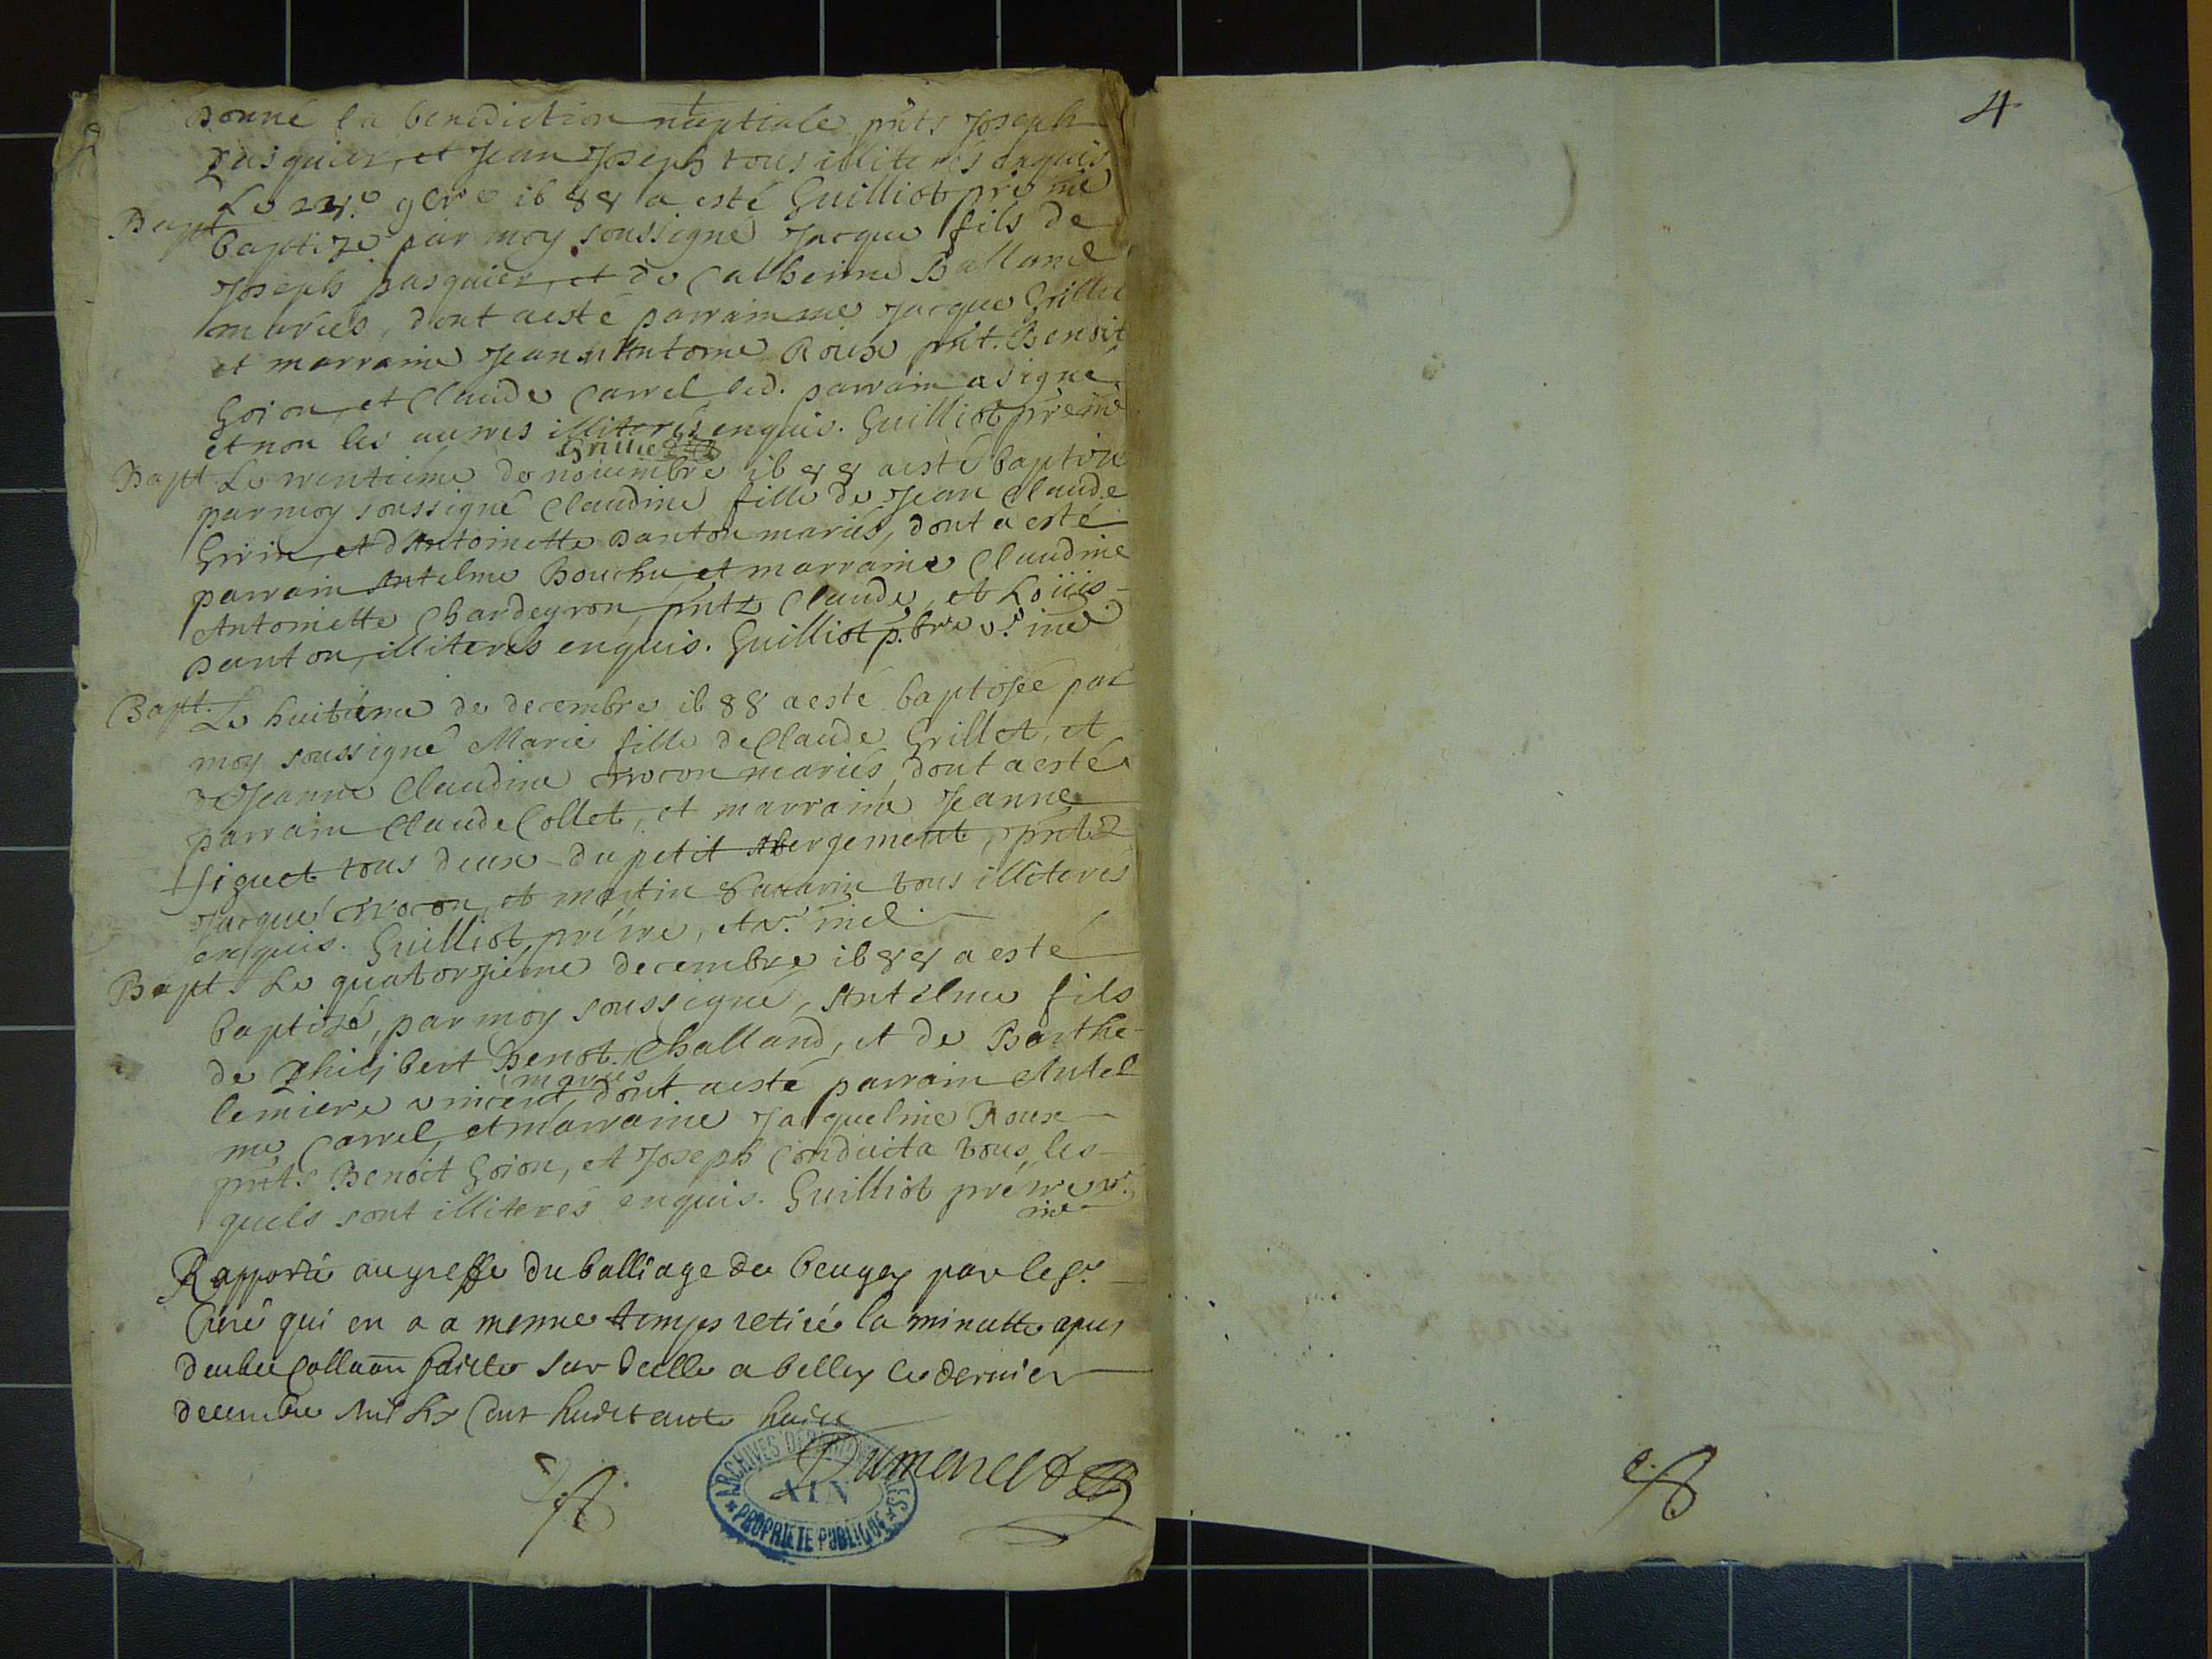 donné la benediction nuptiale pnts Joseph
pasquier, et Jean Joseph tous illiterés enquis
Guilliot pre me
Bapt. Le 9bre 1688 a esté
baptizé par moy soussigné Jacque fils de
Joseph pasquier, et de Catherine Balland
mariés, dont a esté parrain me Jacque Grillet
et marraine Jeann Antoine Roux pnt. Benoit
Goion, et Claude Carrel led. parrain a signé
et non les autres illiterés enquis. Guilliot pre me
Grillet
Bapt. Le trentieme de novembre 1688 a esté baptizée
par moy soussigné Claudine fille de Jean Claude
Grin, et d'Antoinette panton mariés, dont a esté
parrain Antelme Bouchu, et marraine Claudine
Antoinette Chardeyron, pnts Claude, et Loüis
panton, illiterés enquis. Guilliot p.bre v.r me
Bapt. Le huitiéme de decembre 1688 a esté baptisée par
moy soussigné Marie fille de Claude Grillet, et
de Jeanne Claudine trocon mariés, dont a esté
parrain Claude Collet, et marraine Jeanne
figuet tous deux du petit Abergement, pnts
Jacque trocon, et martin Savarin tous illiterés
enquis. Guilliot prétre, et v.r me
Bapt. Le quatorziéme decembre 1688 a esté
baptizé, par moy soussigné, Antelme fils
de Philibert Benot Challand, et de Barthe-
mariés
lemiere vincent, dont a esté parrain Antel
me Carrel, et marraine Jacqueline Roux
pnts Benoit Goion, et Joseph Conducta tous les-
quels sont illiterés enquis. Guilliot prétre v.r
me
Rapporté au greffe du balliage de beugey par le Sr.
Curé qui en a a mesme temps retiré la minutte apres
deuhe Collaon faicte sur Icelle a belley le dernier
decembre mil six cent huictante huict
Dumarest
ARCHIVES DÉPARTEMENTALES
AIN
PROPRIÉTÉ PUBLIQUE
4